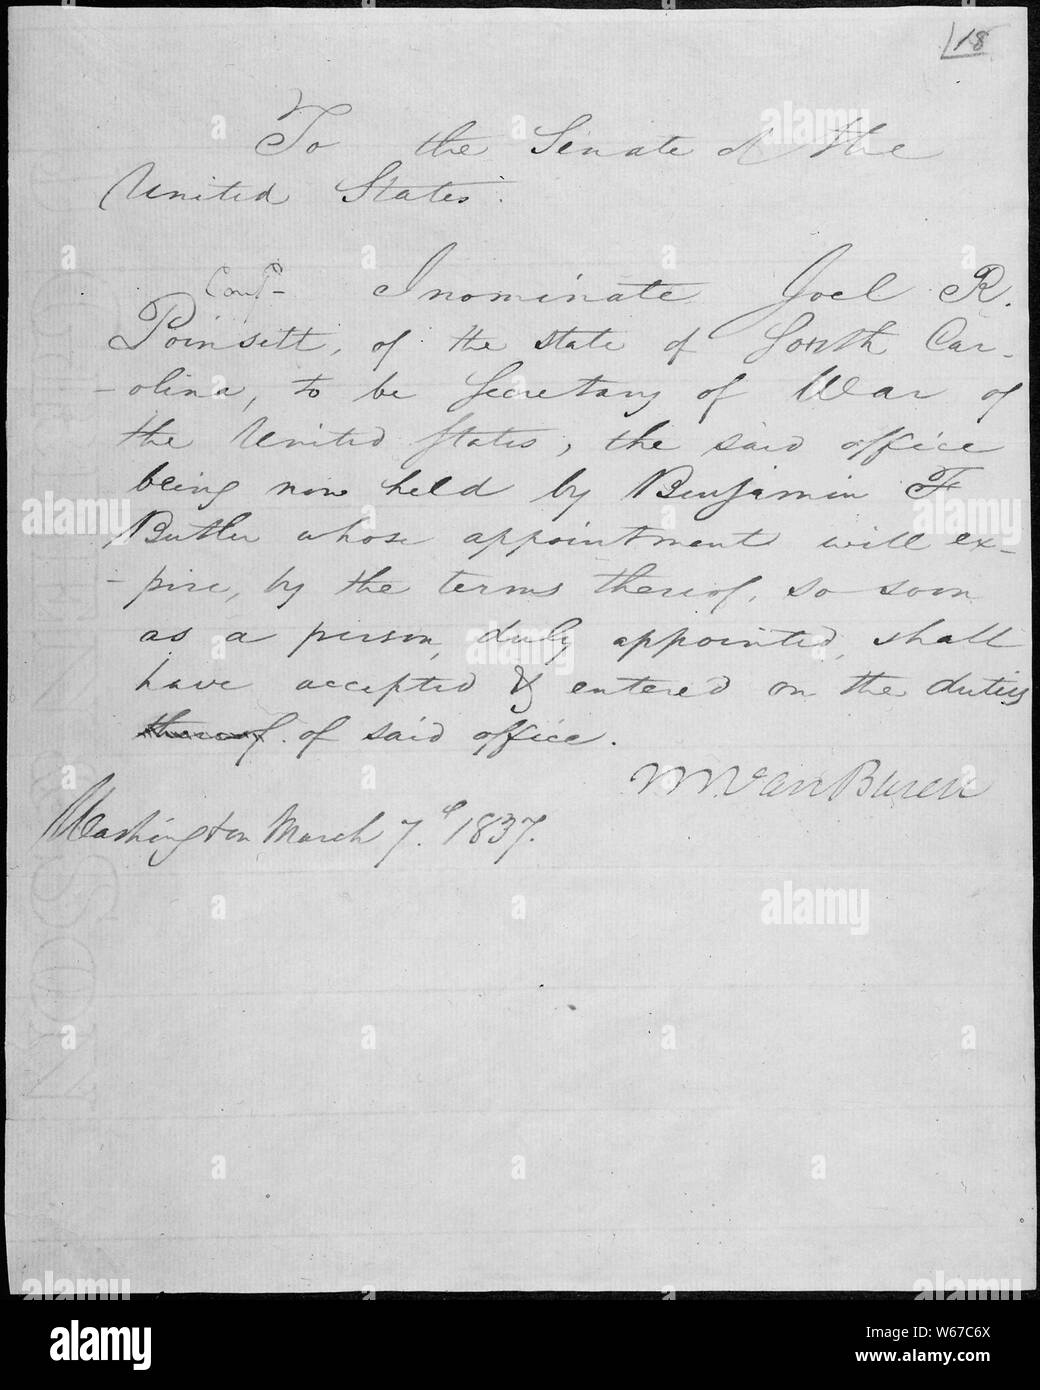 18
To the Senate of the
United States.
Conf-
I nominate Joel R.
Poinsett, of the state of South Car-
-olina, to be Secretary of War of
the United States, the said office
being now held by Benjamin F
Butler whose appointment will ex-
-pire, by the terms thereof, so soon
as a person, duly appointed, shall
have accepted & entered on the duties
thereof of said office.
M Van Buren
Washington March 7th 1837.
alamy
Image ID: W67C6X
www.alamy.com